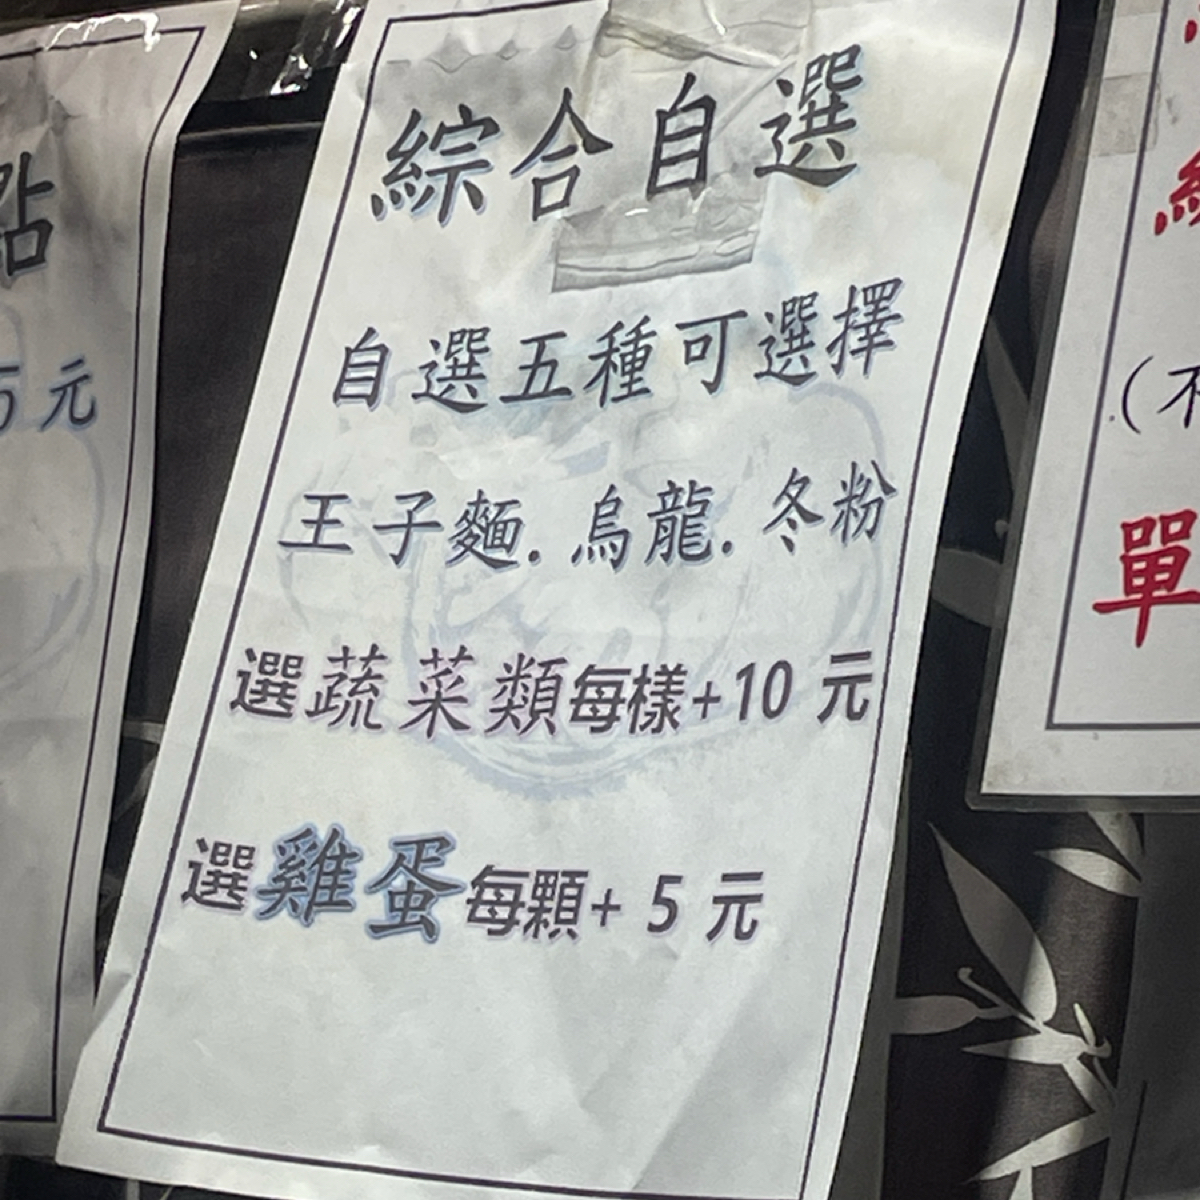 綜合自選
自選五種可選擇
王子麵.烏龍.冬粉
選蔬菜類每樣+10元
選雞蛋每顆+5元
點
5元
(不
單